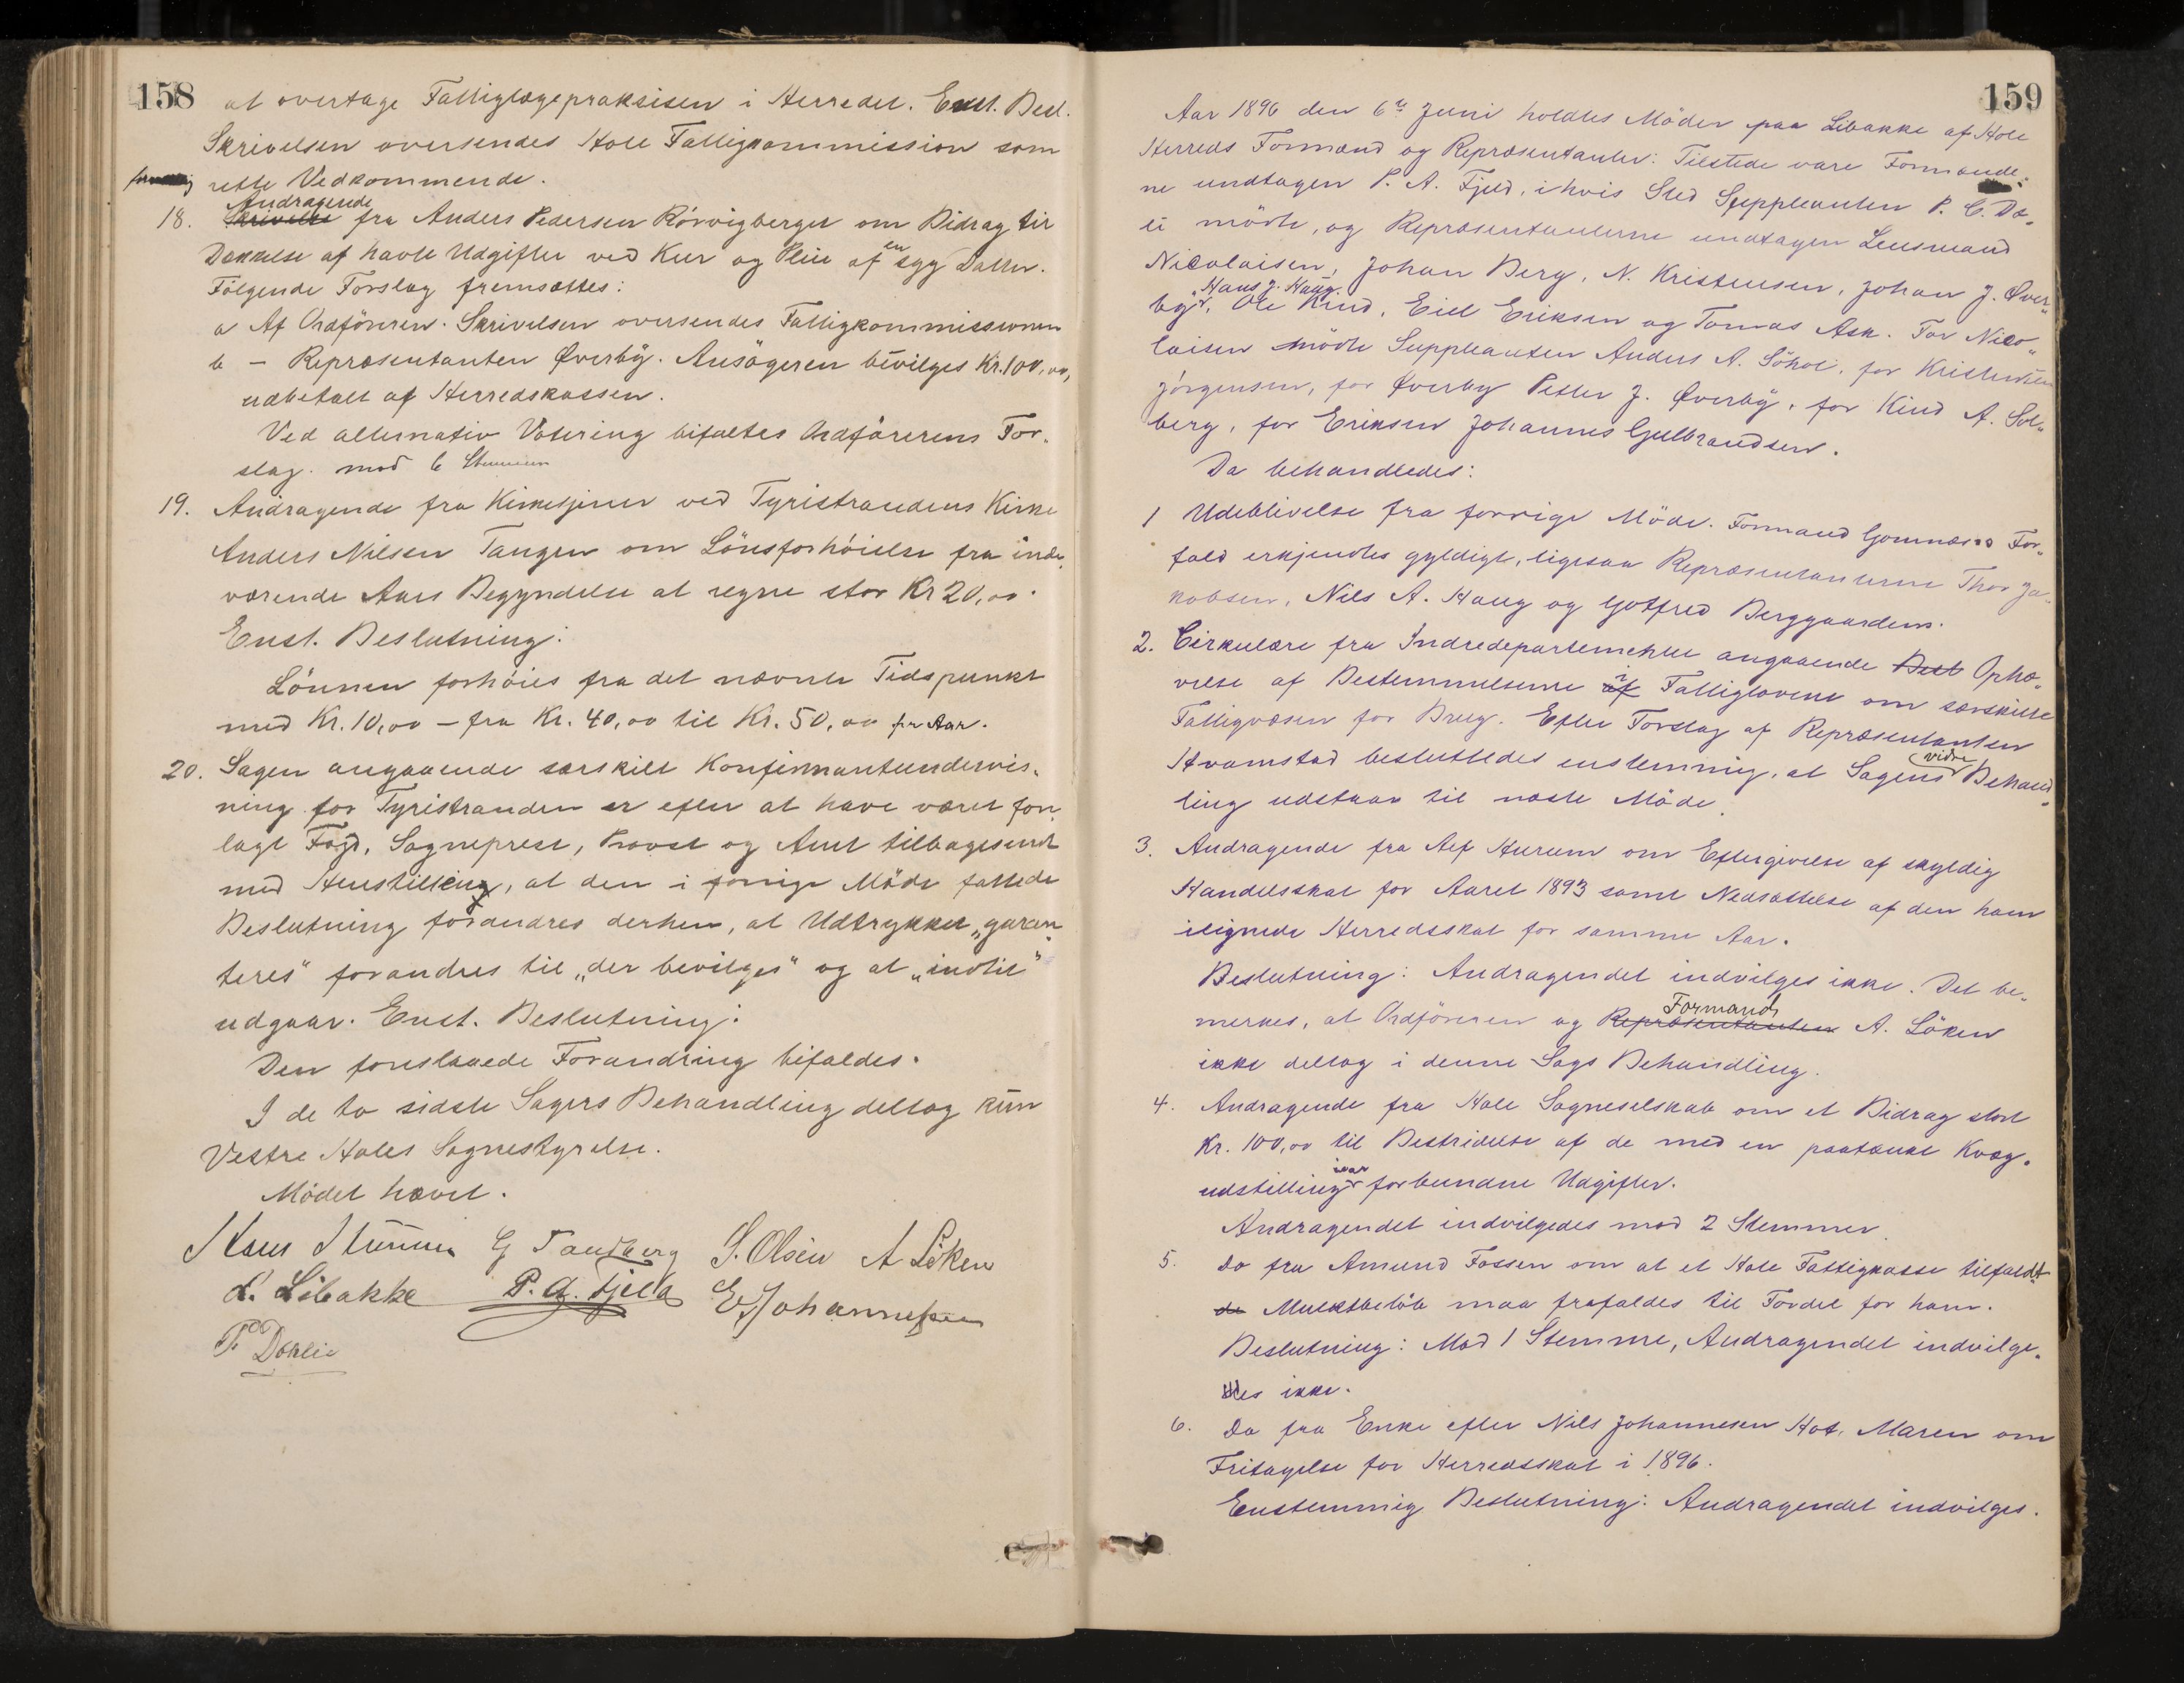 158
at overtage Fattiglægepraksisen i Herredet. Enst. Besl.
Skrivelsen oversendes Hole Fattigkommission som
rette Vedkommende.
Andragende
18. Skrivelse fra Anders Pedersen Rörvigberget om Bidrag til
Dækkelse af havte Udgifter ved Kur og Pleie af en syg Datter.
Fölgende Forslag fremsattes:
a Af Ordföreren. Skrivelsen oversendes Fattigkommissionen
b - Repræsentanten Øverby. Ansögeren bevilges Kr. 100,00,
udbetalt af Herredskassen.
Ved alternativ Votering bifaltes Ordförerens For„
slag. mod 6 Stemmer
19. Andragende fra Kirketjener ved Tyristrandens Kirke
Anders Nilsen Tangen om Lönsforhöielse fra inde„
værende Aars Begyndelse at regne stor Kr 20,00.
Enst. Beslutning:
Lönnen forhöies fra det nævnte Tidspunkt
med Kr. 10,00 – fra Kr. 40,00 til Kr. 50,00 pr Aar.
20. Sagen angaaende særskilt Konfirmantundervis„
ning for Tyristranden er efter at have været fore„
lagt Fogd, Sogneprest, Provst og Amt tilbagesendt
med Henstilling, at den i forrige Möde fattede
Beslutning forandres derhen, at Udtrykket „garan„
teres" forandres til „der bevilges" og at „indtil"
udgaar. Enst. Beslutning:
Den foreslaaede Forandring bifaldes.
I de to sidste Sagers Behandling deltog kun
Vestre Holes Sognestyrelse.
Mödet hævet.
G Tandberg S. Olsen A Löken
L. Libakke P. A. Fjeld E. Johannesen
P. Dæhlie
159
Aar 1896 den 6te Juni holdtes Möder paa Libakke af Hole
Herreds Formænd og Repræsentanter: Tilstede vare Formænde„
ne undtagen P. A. Fjeld, i hvis Sted Suppleanten P. C. Dæ„
li mödte, og Repræsentanterne undtagen Lensmand
Nicolaisen, Johan Berg, N. Kristensen, Johan J. Øver„
Hans J. Haug.
by, Ole Kind, Eiel Eriksen og Tomas Ask. For Nico„
laisen mödte Suppleanten Anders A. Söhol, for Kristensen
Jörgensen, for Øverby Petter J. Øverby, for Kind A. Sol„
berg, for Eriksen Johannes Gulbrandsen.
Da behandledes:
1 Udeblivelse fra forrige Möde. Formand Gomnæs's For„
fald erkjendtes gyldigt, ligesaa Repræsentanterne Thor Ja„
kobsen, Nils A. Haug og Gotfred Berggaarden.
2. Cirkulære fra Indredepartementet angaaende Best Ophæ„
velse af Bestemmelserne af i Fattiglovene om særskilte
Fattigvæsen for Brug. Efter Forslag af Repræsentanten
Hvamstad besluttedes enstemmig, at Sagens vidre Behand„
ling udstaar til næste Möde.
3. Andragende fra Alf Hurum om Eftergivelse af skyldig
Handelsskat for Aaret 1893 samt Nedsættelse af den ham
ilignede Herredsskat for samme Aar.
Beslutning: Andragendet indvilges ikke. Det be„
Formand
merkes, at Ordföreren og Repræsentanten A. Löken
ikke deltog i denne Sags Behandling.
4. Andragende fra Hole Sogneselskab om et Bidrag stort
Kr. 100,00 til Bestridelse af de med en paatænkt Kvæg„
udstilling iaar forbundne Udgifter.
Andragendet indvilgedes mod 2 Stemmer.
5. Do fra Amund Fossen om at et Hole Fattigkasse tilfaldt
de Mulktbelöb maa frafaldes til Fordel for ham.
Beslutning: Mod 1 Stemme, Andragendet indvilge„
des ikke.
6. Do fra Enke efter Nils Johannesen Hot. Maren om
Fritagelse for Herredsskat i 1896.
Enstemmig Beslutning: Andragendet indvilges.